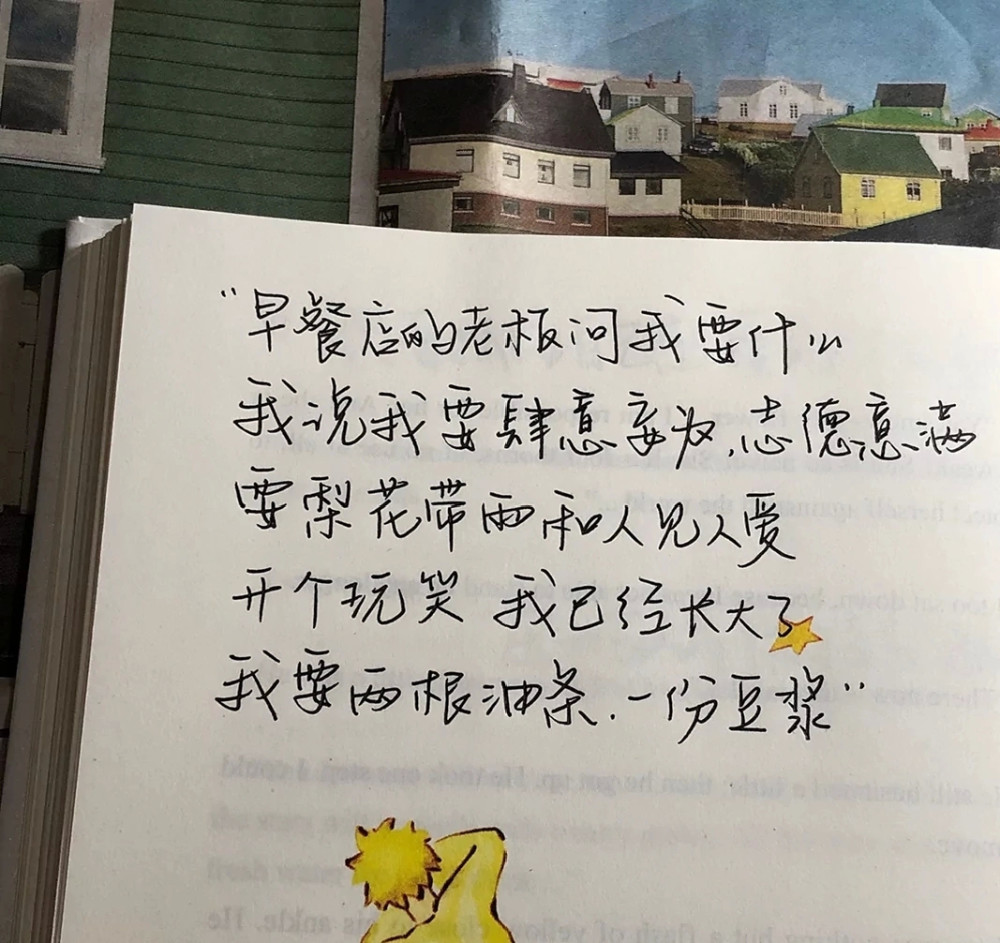 “早餐店的老板问我要什么
我说我要肆意妄为,志德意满
要梨花带雨和人见人爱
开个玩笑 我已经长大了
我要两根油条.一份豆浆”